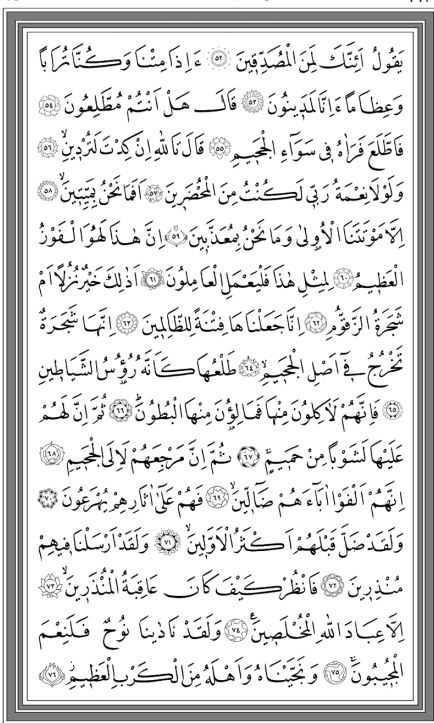 يَقُولُ اَئِنَّكَ لَمِنَ الْمُصَدِّقٖينَ ﴿٥٢﴾ ءَاِذَا مِتْنَا وَكُنَّا تُرَاباً
وَعِظَاماً ءَاِنَّا لَمَدٖينُونَ ﴿٥٣﴾ قَالَ هَلْ اَنْتُمْ مُطَّلِعُونَ ﴿٥٤﴾
فَاطَّلَعَ فَرَاٰهُ فٖى سَوَٓاءِ الْجَحٖيمِ ﴿٥٥﴾ قَالَ تَاللّٰهِ اِنْ كِدْتَ لَتُرْدٖينِۙ ﴿٥٦﴾
وَلَوْلَا نِعْمَةُ رَبّٖى لَكُنْتُ مِنَ الْمُحْضَرٖينَ ﴿٥٧﴾ اَفَمَا نَحْنُ بِمَيِّتٖينَۙ ﴿٥٨﴾
اِلَّا مَوْتَتَنَا الْاُولٰى وَمَا نَحْنُ بِمُعَذَّبٖينَ ﴿٥٩﴾ اِنَّ هٰذَا لَهُوَ الْفَوْزُ
الْعَظٖيمُ ﴿٦٠﴾ لِمِثْلِ هٰذَا فَلْيَعْمَلِ الْعَامِلُونَ ﴿٦١﴾ اَذٰلِكَ خَيْرٌ نُزُلاً اَمْ
شَجَرَةُ الزَّقُّومِ ﴿٦٢﴾ اِنَّا جَعَلْنَاهَا فِتْنَةً لِلظَّالِمٖينَ ﴿٦٣﴾ اِنَّهَا شَجَرَةٌ
تَخْرُجُ فٖٓى اَصْلِ الْجَحٖيمِۙ ﴿٦٤﴾ طَلْعُهَا كَاَنَّهُ رُؤُ۫سُ الشَّيَاطٖينِ
﴿٦٥﴾ فَاِنَّهُمْ لَاٰكِلُونَ مِنْهَا فَمَالِؤُ۫نَ مِنْهَا الْبُطُونَۜ ﴿٦٦﴾ ثُمَّ اِنَّ لَهُمْ
عَلَيْهَا لَشَوْباً مِنْ حَمٖيمٍۚ ﴿٦٧﴾ ثُمَّ اِنَّ مَرْجِعَهُمْ لَاِلَى الْجَحٖيمِ ﴿٦٨﴾
اِنَّهُمْ اَلْفَوْا اٰبَٓاءَهُمْ ضَٓالّٖينَۙ ﴿٦٩﴾ فَهُمْ عَلٰٓى اٰثَارِهِمْ يُهْرَعُونَ ﴿٧٠﴾
وَلَقَدْ ضَلَّ قَبْلَهُمْ اَكْثَرُ الْاَوَّلٖينَۙ ﴿٧١﴾ وَلَقَدْ اَرْسَلْنَا فٖيهِمْ
مُنْذِرٖينَ ﴿٧٢﴾ فَانْظُرْ كَيْفَ كَانَ عَاقِبَةُ الْمُنْذَرٖينَۙ ﴿٧٣﴾
اِلَّا عِبَادَ اللّٰهِ الْمُخْلَصٖينَ۟ ﴿٧٤﴾ وَلَقَدْ نَادٰينَا نُوحٌ فَلَنِعْمَ
الْمُجٖيبُونَۘ ﴿٧٥﴾ وَنَجَّيْنَاهُ وَاَهْلَهُ مِنَ الْكَرْبِ الْعَظٖيمِۘ ﴿٧٦﴾